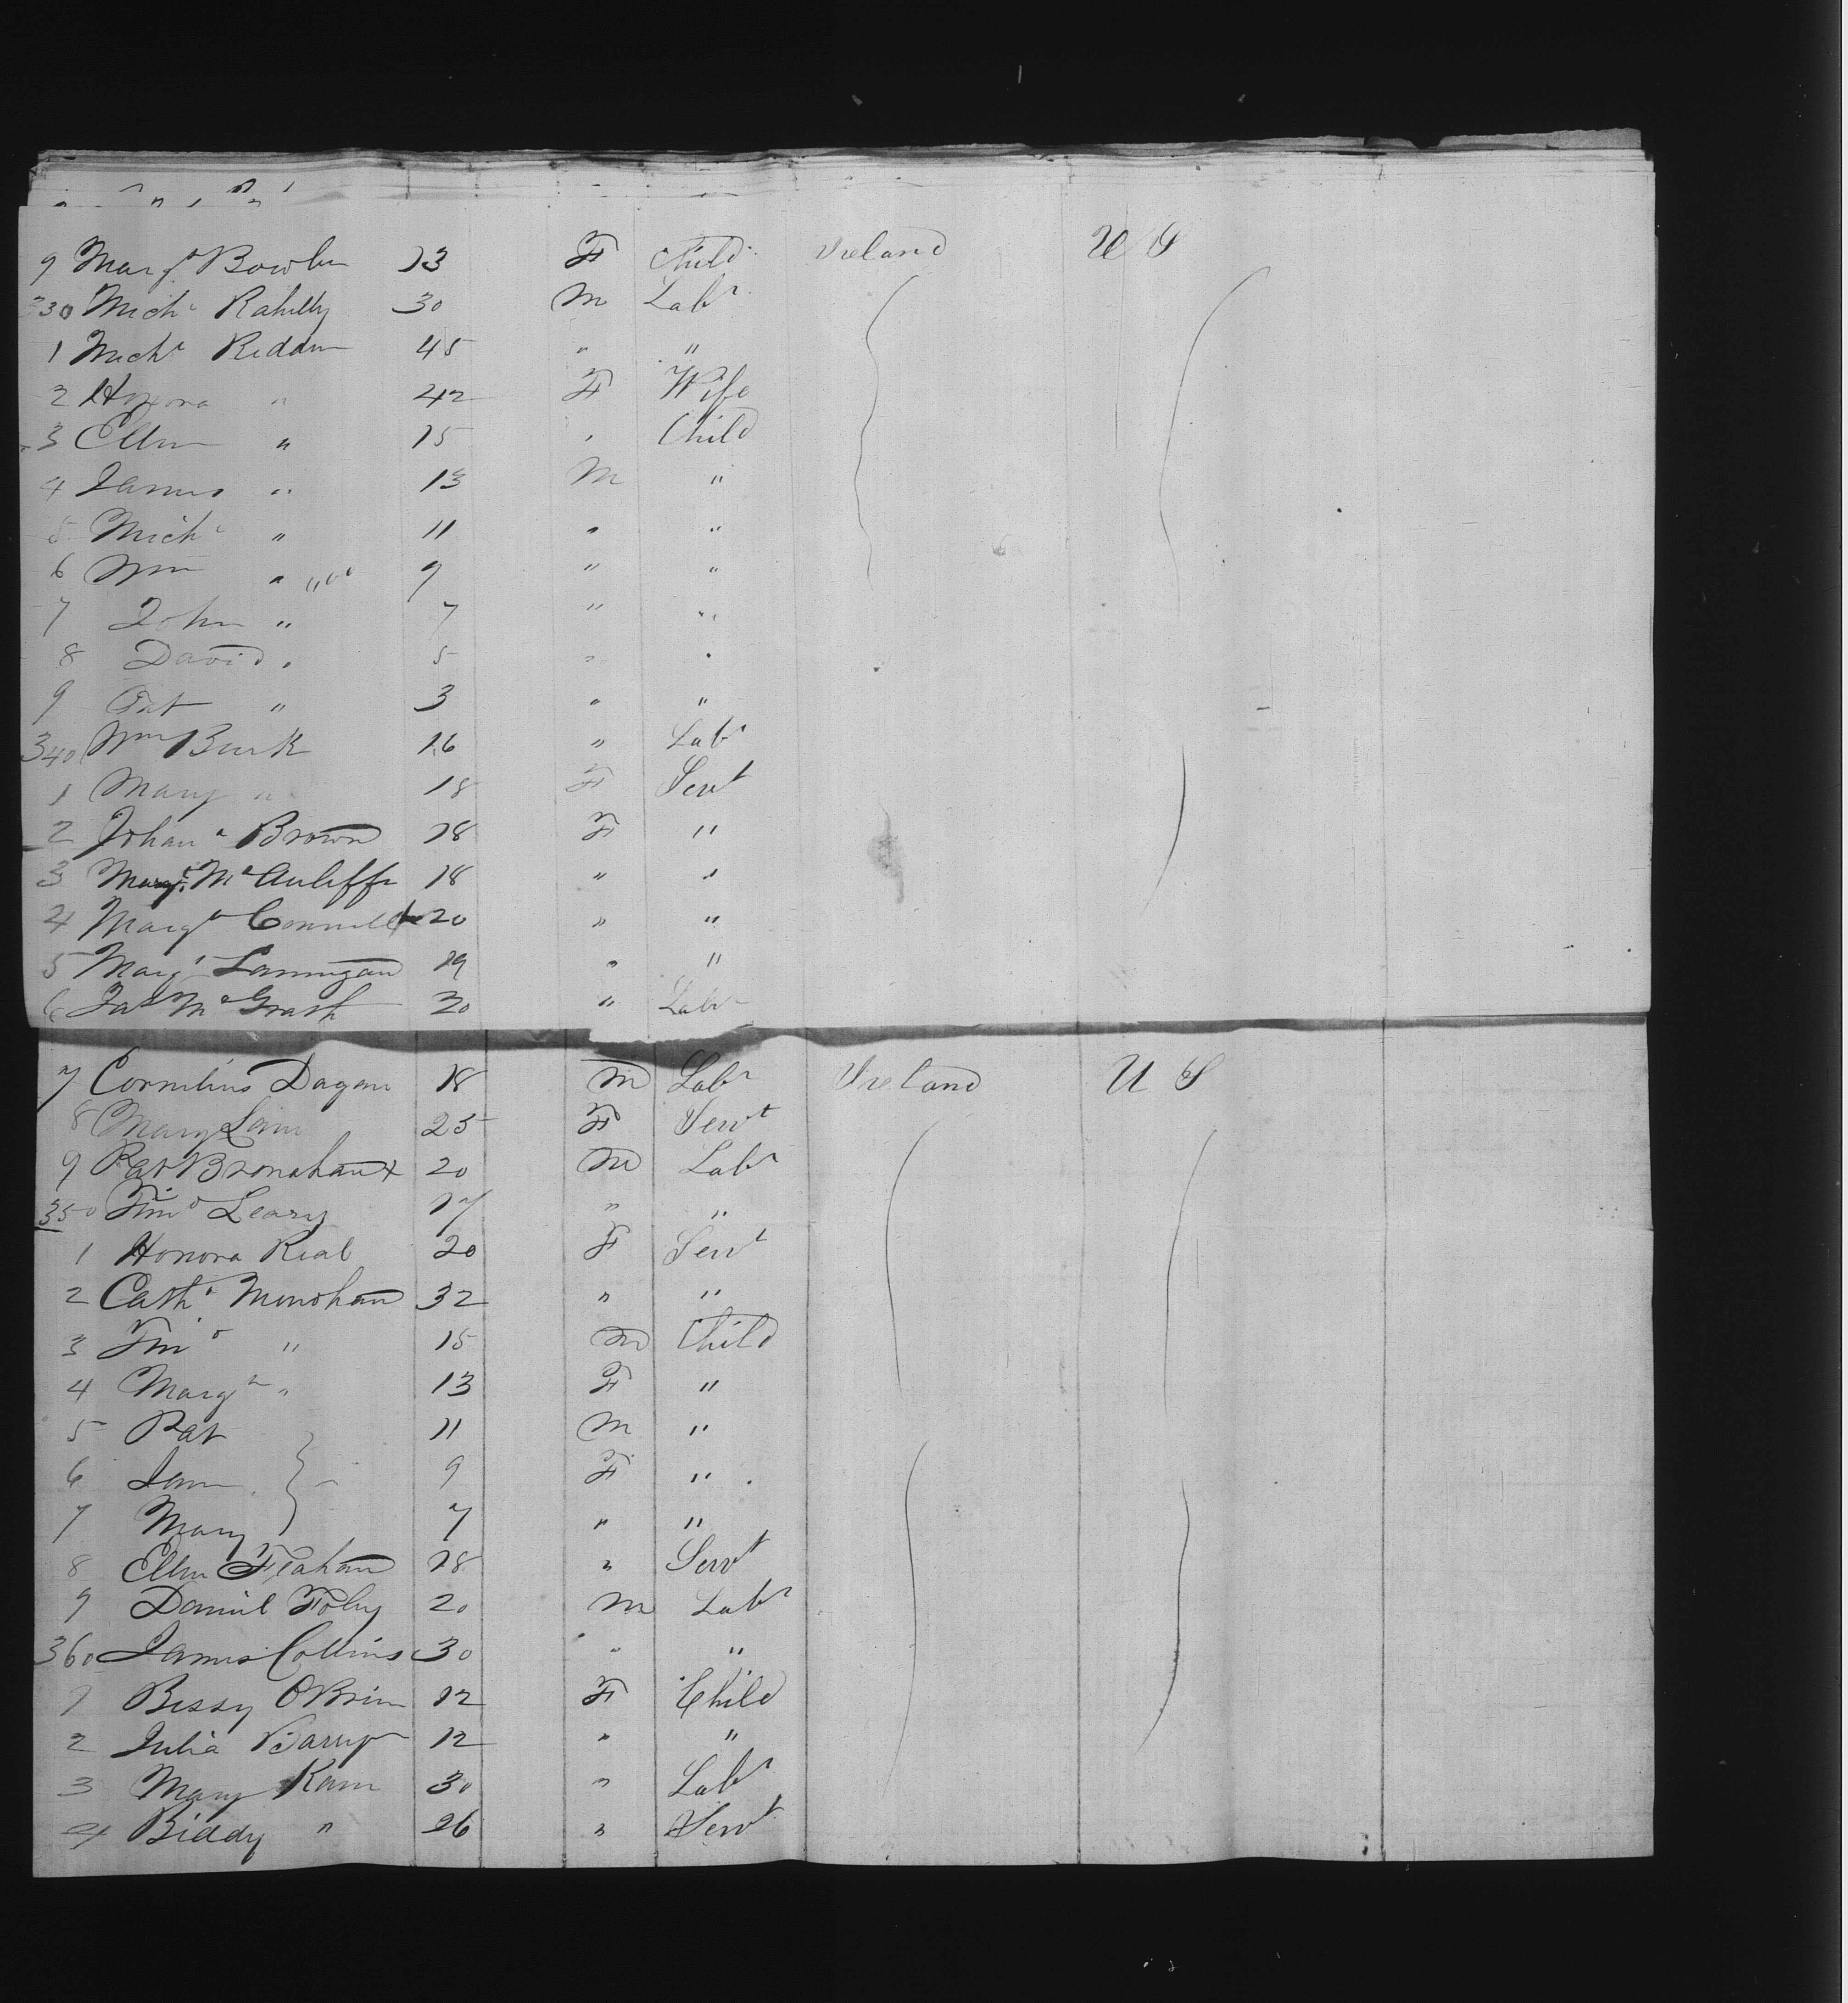 9 Margt Bowlen 13 F Child Ireland U S
330 Michl Rahilly 30 m Labr
1 Michl Reddan 45 " "
2 Honora " 42 F Wife
3 Ellen " 15 " Child
4 James " 13 M "
5 Michl " 11 " "
6 Wm " 9 " "
7 John " 7 " "
8 David " 5 " "
9 Pat " 3 " "
340 Wm Burk 16 " Labr
1 Mary " 18 F Servt
2 Johana Brown 18 F "
3 Margt McAuliffe 18 " "
4 Margt Connell 20 " "
5 Margt Lannigan 19 " "
6 Jas McGrath 30 " Labr
7 Cornelius 18 m Labr Ireland U S
8 Mary 25 F Servt
9 Pat Bronahan 20 m Labr
350 Timo Leary 17 " "
1 Honora Real 20 F Servt
2 Cathe Monohan 32 " "
3 Timo " 15 m Child
4 Margt " 13 F "
5 Pat 11 m "
6 9 F "
7 Mary 7 " "
8 Ellen 18 " Servt
9 Daniel Foley 20 m Labr
360 James Collins 30 " "
1 Bessy OBrien 12 F Child
2 Julia Barry 12 " "
3 Mary Kane 30 " Labr
4 Biddy " 26 " Servt